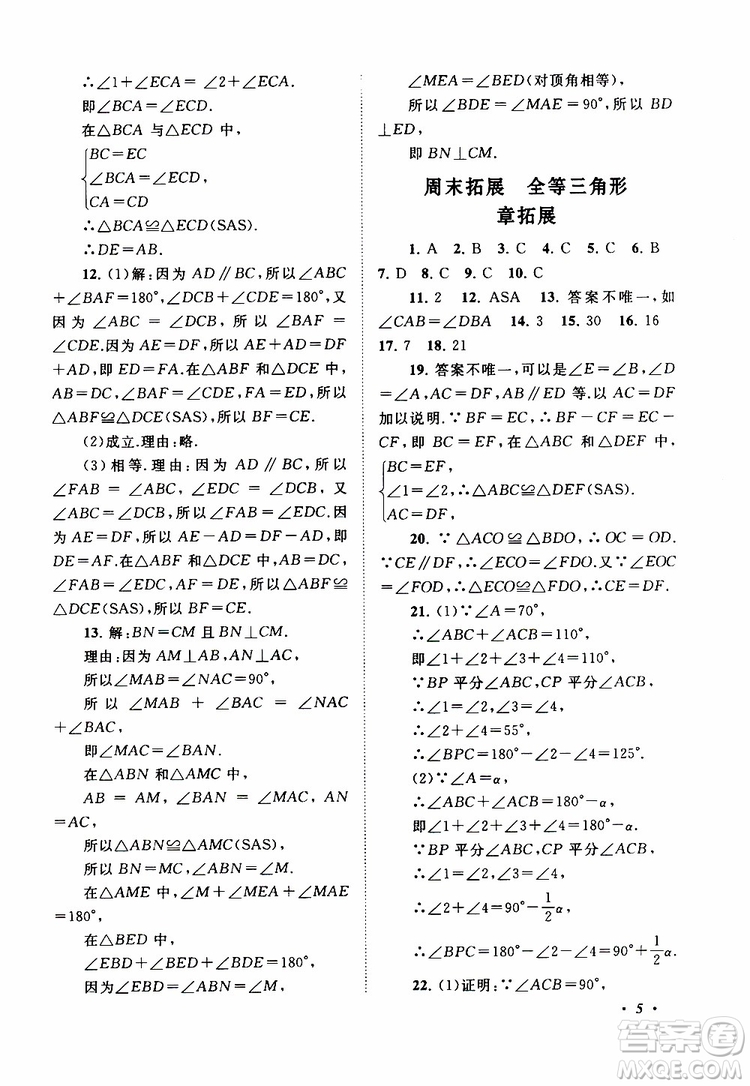 ∴∠1+∠ECA= ∠2+∠ECA.
即∠BCA=∠ECD.
在△BCA 与△ECD 中,
BC=EC
∠BCA=∠ECD,
CA=CD
∴△BCA≌△ECD(SAS).
∴DE=AB.
12. (1)解:因为 AD∥BC,所以∠ABC
+∠BAF=180°,∠DCB+∠CDE=180°,又
因为∠ABC = ∠DCB,所以∠BAF =
∠CDE.因为AE=DF,所以AE+AD=DF+
AD,即ED=FA.在△ABF 和△DCE 中,
AB=DC,∠BAF=∠CDE,FA=ED,所以
△ABF≌△DCE(SAS),所以BF=CE.
(2)成立.理由:略.
(3)相等.理由:因为 AD∥BC,所以
∠FAB = ∠ABC,∠CDE = ∠DCB,又
因为∠ABC=∠DCB,所以∠BAF=∠CDE.
因为AE=DF,所以AE-AD=DF-AD,即
DE=AF.在△ABF 和△DCE 中,AB=DC,
∠BAF=∠EDC,AF=DE,所以△ABF≌
△DCE(SAS),所以BF=CE.
13. 解:BN=CM 且BN⊥CM.
理由:因为AM⊥AB,AN⊥AC,
所以∠MAB=∠NAC=90°,
所以∠MAB + ∠BAC = ∠NAC
+∠BAC,
即∠MAC=∠BAN.
在△ABN 和△AMC 中,
AB = AM,∠BAN = ∠MAC,AN
=AC,
所以△ABN≌△AMC(SAS),
所以BN=MC,∠ABN=∠M.
在△AME 中,∠M+∠MEA+∠MAE
=180°,
在△BED 中,
∠EBD+∠BED+∠BDE=180°,
因为∠EBD=∠ABN=∠M,
∠MEA=∠BED(对顶角相等),
所以∠BDE=∠MAE=90°,所以 BD
⊥ED,
即BN⊥CM.
周末拓展 全等三角形
章拓展
1. A 2. B 3. C 4. C 5. C 6. B
7. D 8. C 9. C 10. C
11. 2 12. ASA 13. 答案不唯一,如
∠CAB=∠DBA 14. 3 15. 30 16. 16
17. 7 18. 21
19. 答案不唯一,可以是∠E=∠B,∠D
=∠A,AC=DF,AC∥DF等.以AC=DF
加以说明.∵BF=EC,∴BF-CF=EC-
CF,即 BC=EF,在△ABC 和△DEF 中,
BC=EF,
∠1=∠2,∴△ABC≌△DEF(SAS).
AC=DF,
20. ∵△ACO≌△BDO,∴OC=OD.
∵CE∥DF,∴∠ECO=∠FDO.又∵∠EOC
=∠FOD,∴△ECO≌△FDO,∴CE=DF.
21. (1)∵∠A=70°,
∴∠ABC+∠ACB=110°,
即∠1+∠2+∠3+∠4=110°,
∵BP平分∠ABC,CP平分∠ACB,
∴∠1=∠2,∠3=∠4,
∴∠2+∠4=55°,
∴∠BPC=180°-∠2-∠4=125°.
(2)∵∠A=α,
∴∠ABC+∠ACB=180°-α,
即∠1+∠2+∠3+∠4=180°-α.
∵BP平分∠ABC,CP平分∠ACB,
∴∠1=∠2,∠3=∠4,
∴∠2+∠4=90°-1/2α,
∴∠BPC=180°-∠2-∠4=90°+1/2α.
22. (1)证明:∵∠ACB=90°,
· 5 ·
答案圈